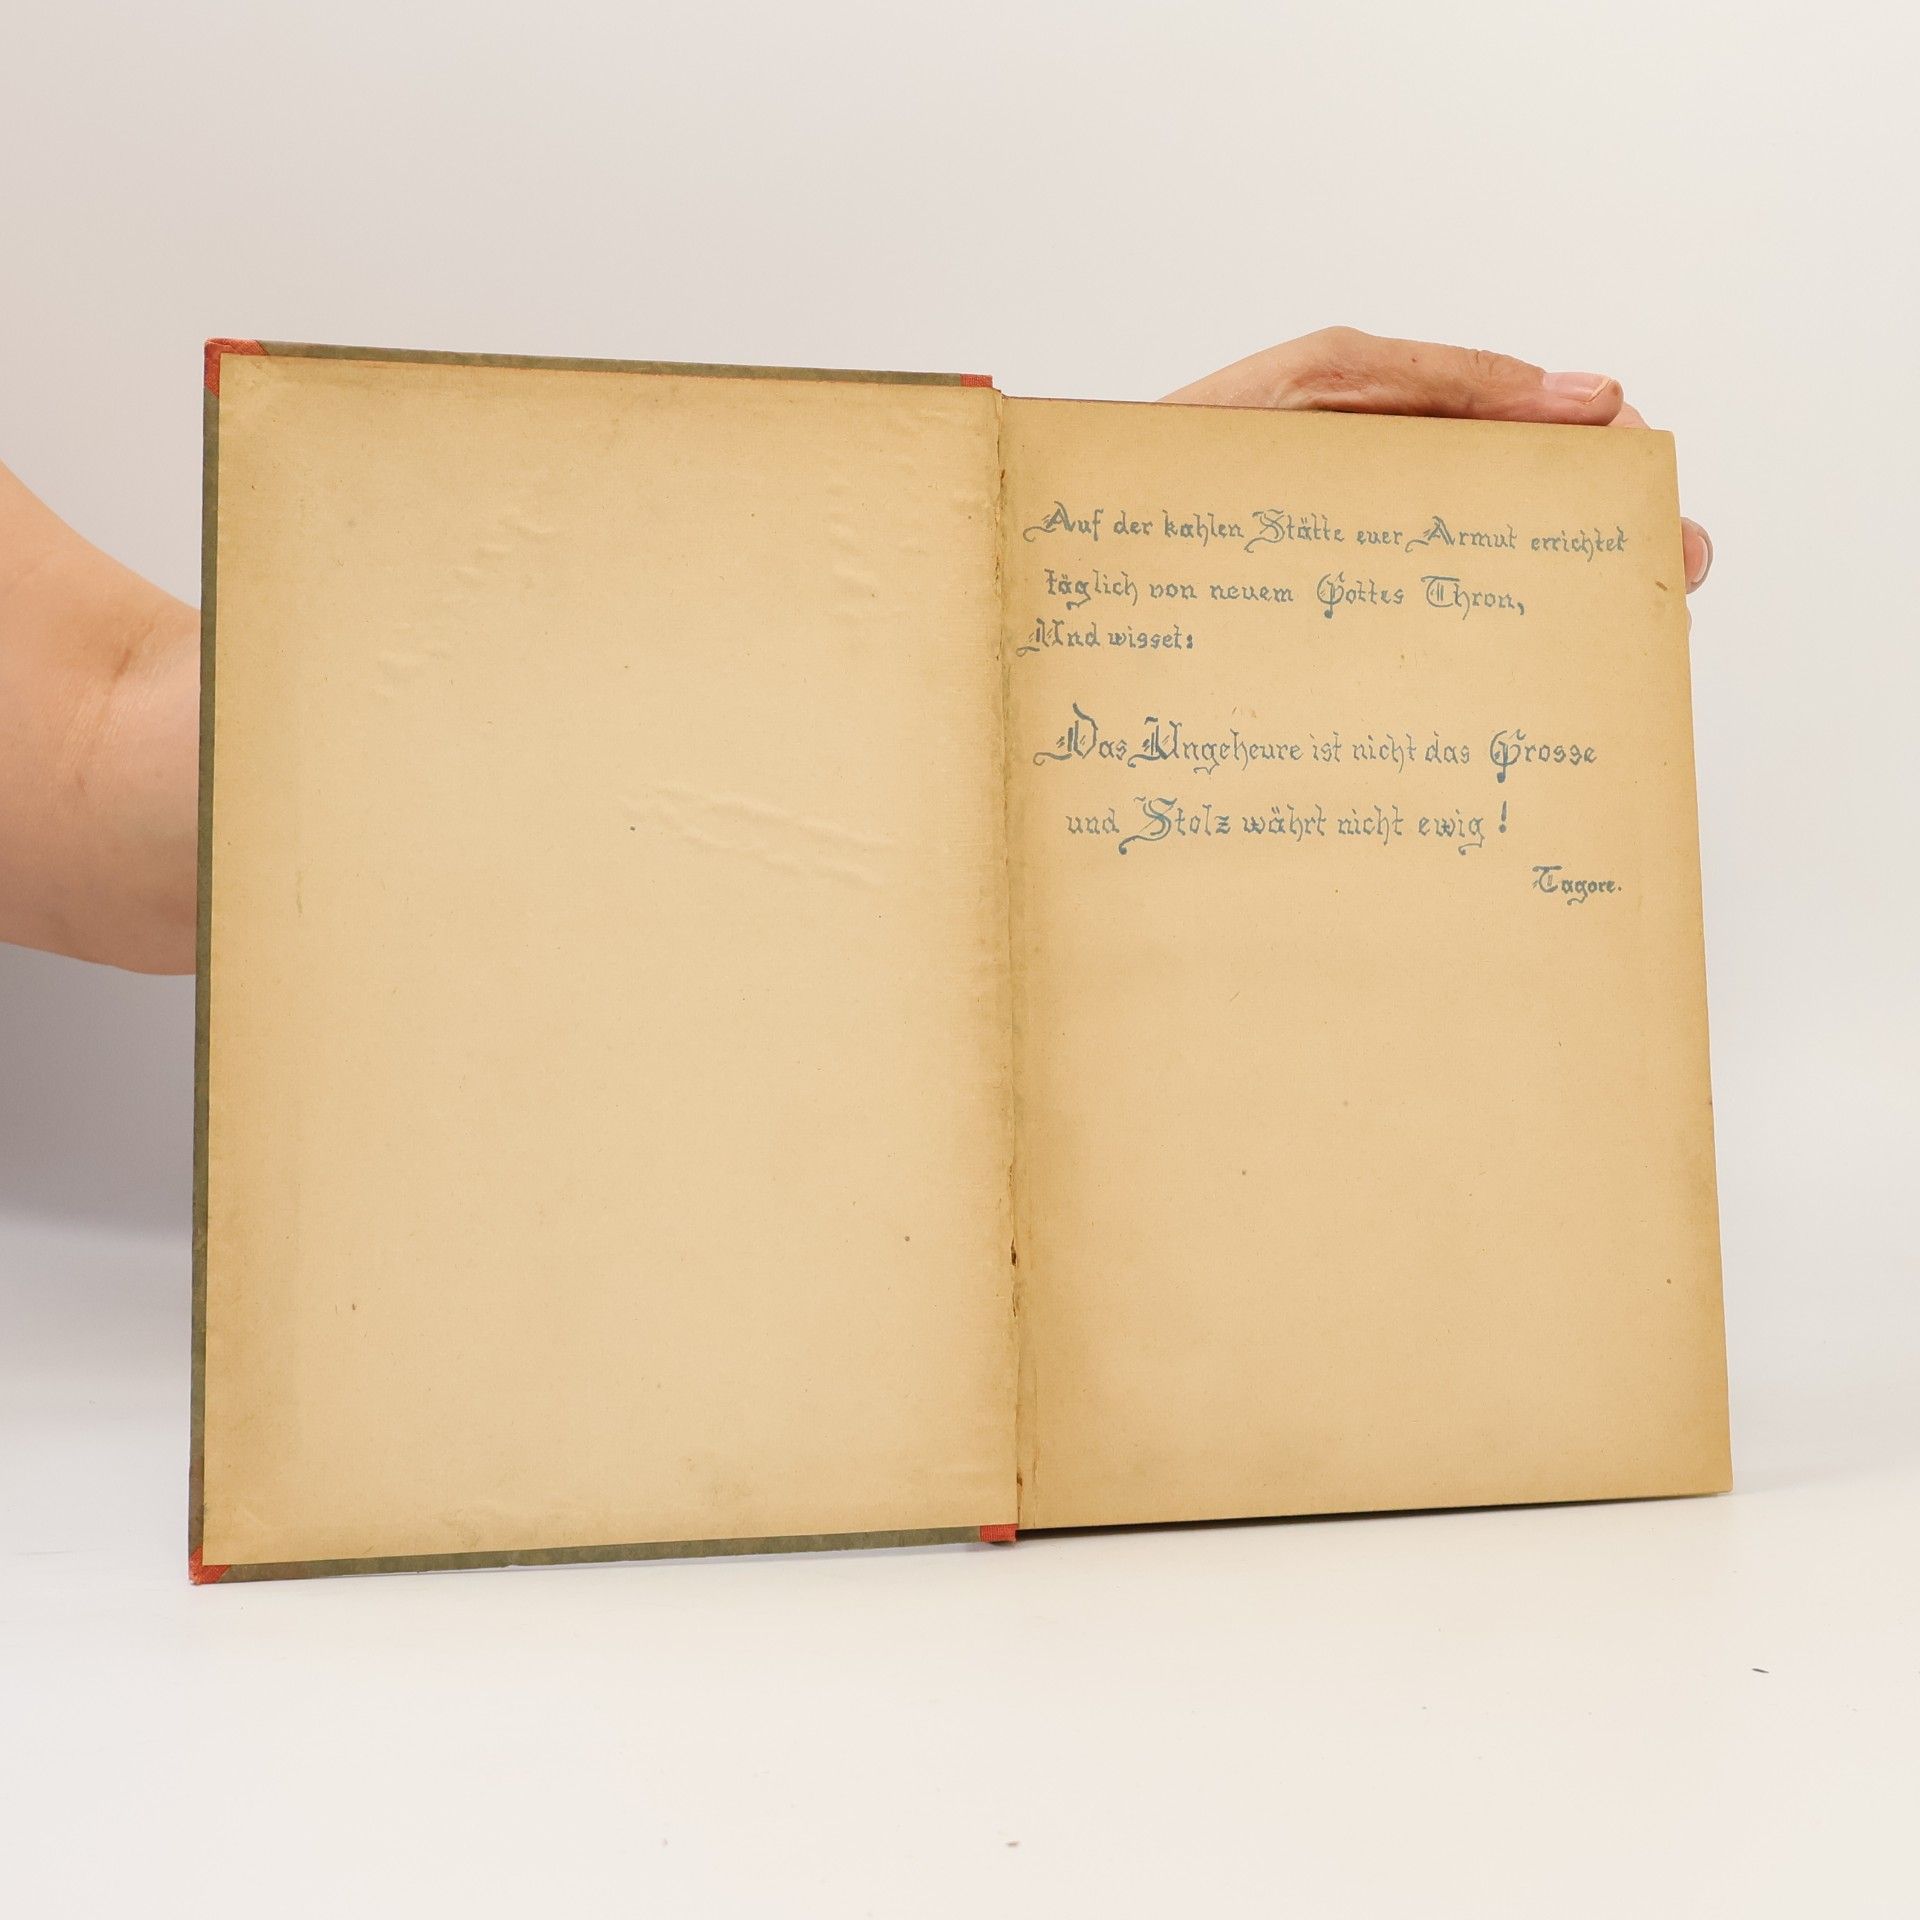 Auf der kahlen Stätte euer Armut errichtet
täglich von neuem Gottes Thron,
Und wisset:
Das Ungeheure ist nicht das Grosse
und Stolz währt nicht ewig!
Tagore.